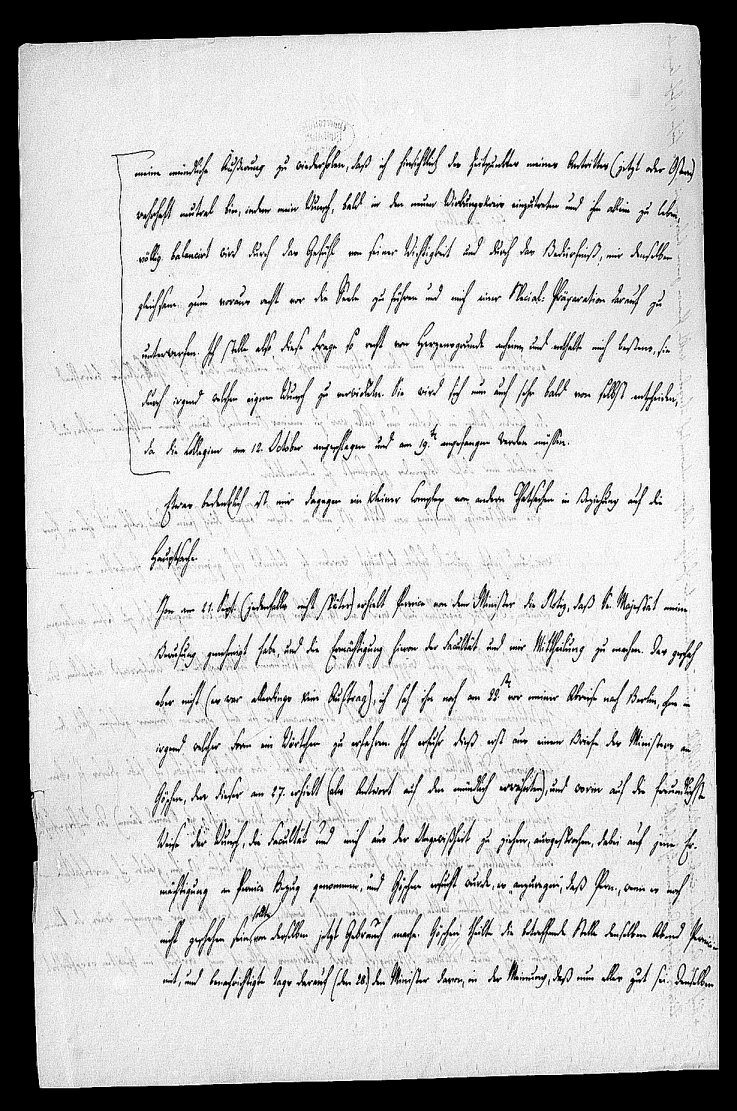 meine mündliche Äußerung zu wiederholen, daß ich hinsichtlich des Zeitpunktes meines Antrittes (jetzt oder Ostern)
wahrhaft neutral bin, indem mein Wunsch, bald in den neuen Wirkungskreis einzutreten und ihm allein zu leben,
völlig balancirt wird durch das Gefühl von seiner Wichtigkeit und durch das Bedürfniß, mir denselben
gleichsam zum voraus recht vor die Seele zu führen und mich einer Special-Präparation darauf zu
unterwerfen. Ich stelle also diese Frage so recht von Herzensgrunde anheim, und enthalte mich bestens, sie
durch irgend welchen eigenen Wunsch zu verwickeln. Sie wird sich nun auch sehr bald von selbst entscheiden,
da die Collegien am 12. October angeschlagen und am 19.ten angefangen werden müssen.
Etwas bedenklich ist mir dagegen ein kleiner Complex von andern Thatsachen in Beziehung auf die
Hauptsache.
Schon am 21. Sept. (jedenfalls nicht später) erhielt Pernice von dem Minister die Notiz, daß Se. Majestät meine
Berufung genehmigt habe, und die Ermächtigung hievon der Facultät und mir Mittheilung zu machen. Das geschah
aber nicht (es war allerdings kein Auftrag), ich sah ihn noch am 22.ten vor meiner Abreise nach Berlin, ohne in
irgend welcher Form ein Wörtchen zu erfahren. Ich erfuhr dieß erst aus einem Briefe des Ministers an
Göschen, den dieser am 27. erhielt (als Antwort auf den mündlich erwähnten), und worin auf die freundlichste
Weise der Wunsch, die Facultät und mich aus der Ungewißheit zu ziehen, ausgesprochen, dabei auf jene Er-
mächtigung an Pernice Bezug genommen, und Göschen ersucht wurde, es anzuregen, daß Pern., wenn es noch
nicht geschehen sein sollte, von derselben jetzt Gebrauch mache. Göschen theilte die betreffende Stelle denselben Abend Pernice
mit, und benachrichtigte Tags darauf (den 28.) den Minister davon, in der Meinung, daß nun alles gut sei. Denselben